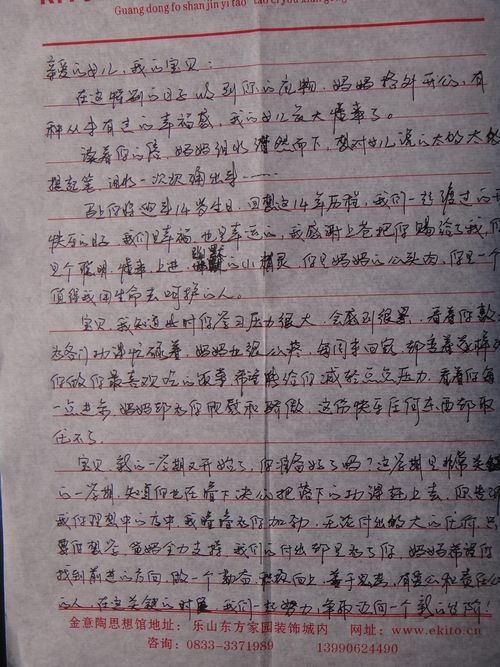 Guang dong fo shan jin yi tao
亲爱的女儿，我的宝贝：
在这特别的日子收到你的礼物，妈妈格外开心，有
种从未有过的幸福感，我的女儿长大懂事了。
读着你的信，妈妈泪水潸然而下，想对女儿说的太多太多
提起笔，泪水一次次涌出来……
马上你将迎来14岁生日，回想这14年历程，我们一起渡过的
快乐的时，我们是幸福，也是幸运的，我感谢上苍把你赐给了我，你
是个聪明、懂事、上进、的小精灵，你是妈妈的心头肉，你是一个
值得我用生命去呵护的人。
宝贝，我知道此时你学习压力很大，会感到很累，看着你
为各门功课忙碌着，妈妈也很心疼，每周末回家，都变着花样
你做你最喜欢吃的饭菜希望能给你减轻点点压力，看着你每
一点进步，妈妈都为你欣慰和骄傲，这份快乐任何东西都取
代不了。
宝贝，新的一学期又开始了，你准备好了吗？这学期是非常关键
的一学期，知道你也在暗下决心把落下的功课赶上去，你告诉
我你理想中的高中，我暗暗为你加劲，无论付出多大的代价，只
要你想学，爸妈全力支持，我们的付出都是为了你，妈妈希望你
找到前进的方向，做一个勤奋、积极向上、善于思考，有爱心和责任心
的人，在这关键的时候，我们一起努力，争取迈向一个新的台阶！
金意陶思想馆地址：乐山东方家园装饰城内 网址：www.ekito.cn
咨询：0833-3371989 13990624490